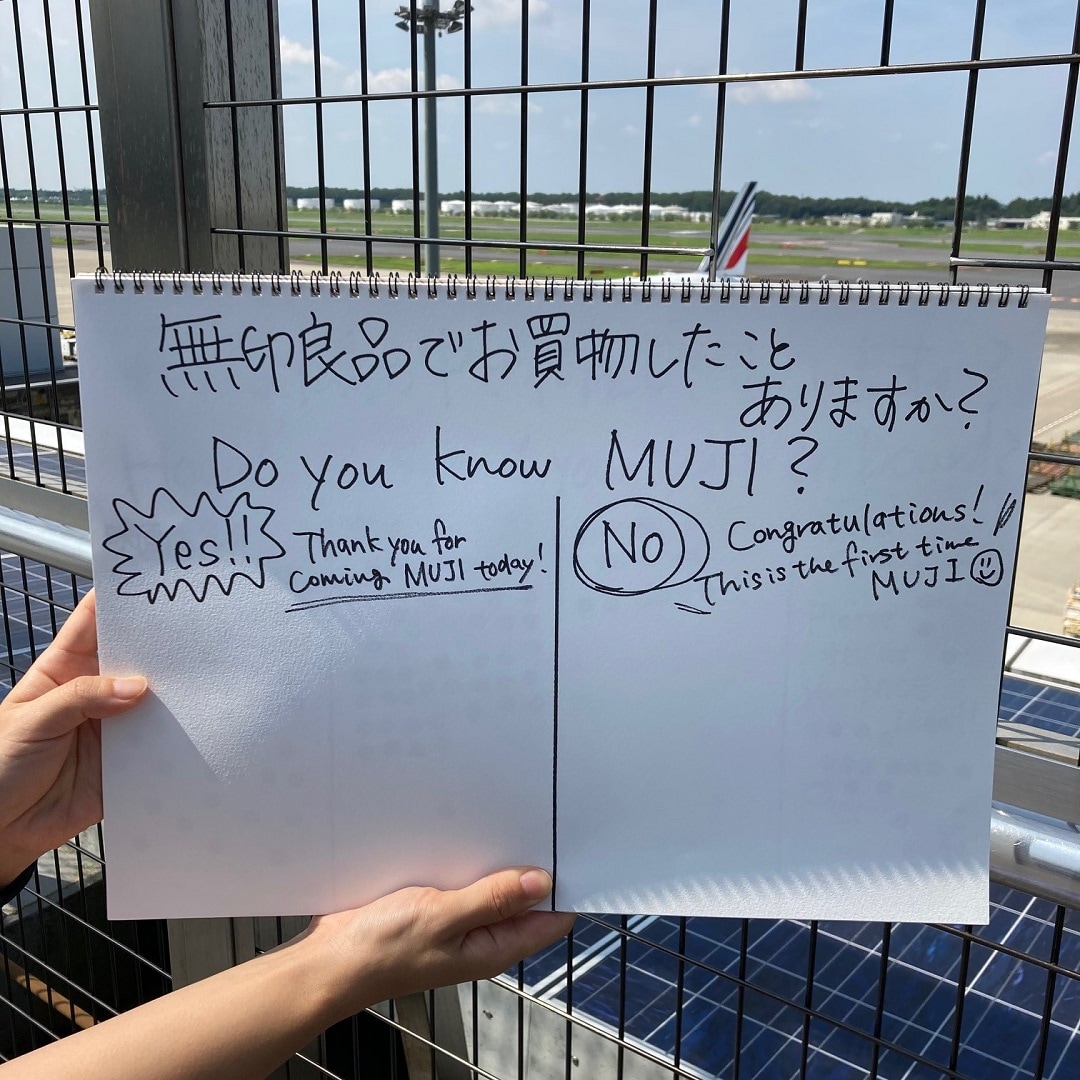 無印良品でお買物したこと
ありますか?
Do you know MUJI?
Yes!!
Thank you for
coming MUJI today!
No
Congratulations!
This is the first time
MUJI